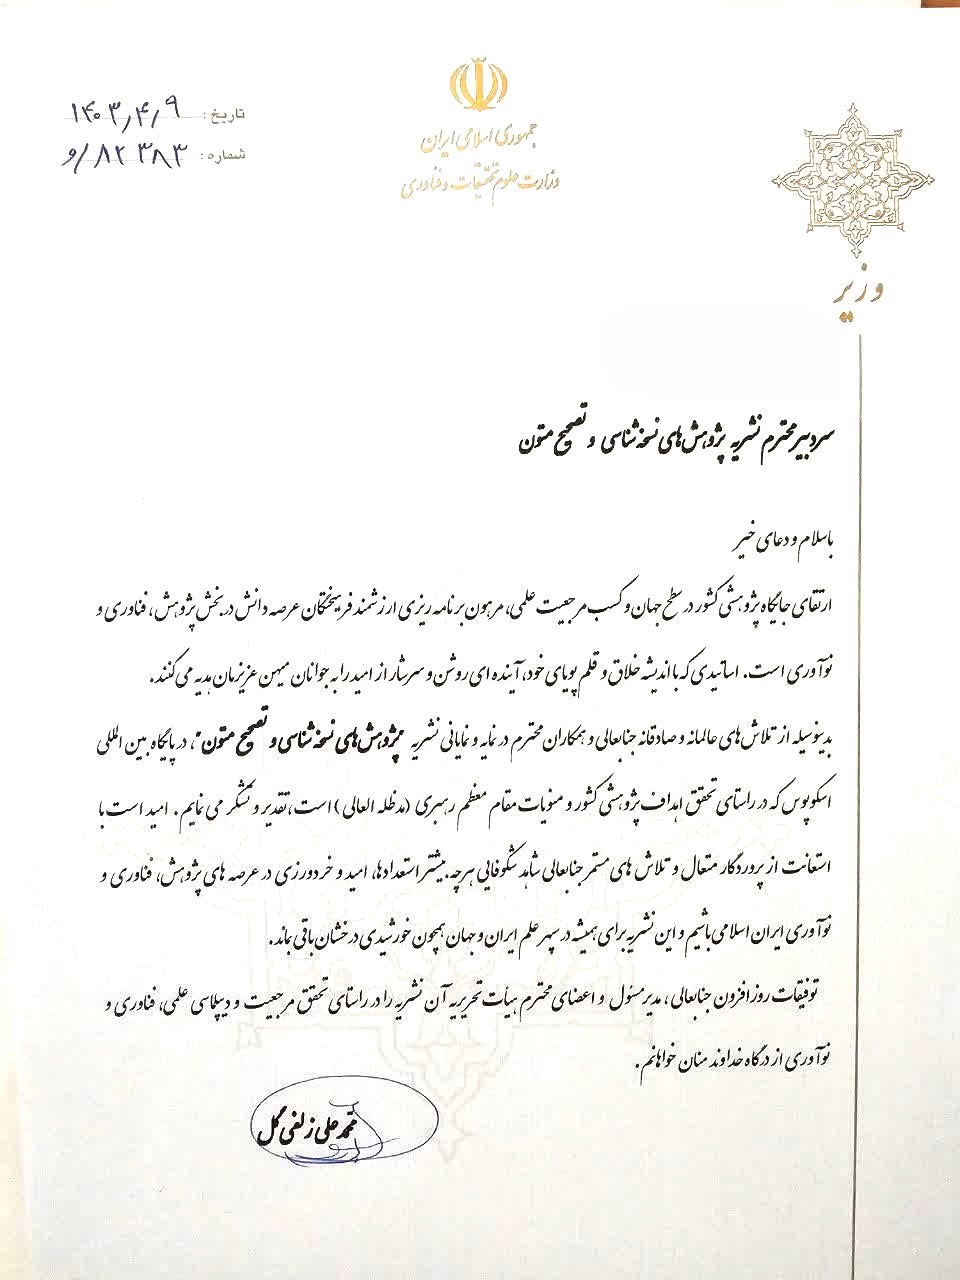 تاریخ: ۱۴۰۳/۴/۹
شماره: ۸۲۳۸۳/و
جمهوری اسلامی ایران
وزارت علوم تحقیقات و فناوری
وزیر
سردبیر محترم نشریه پژوهش‌های نسخه‌شناسی و تصحیح متون
باسلام و دعای خیر
ارتقای جایگاه پژوهشی کشور در سطح جهان و کسب مرجعیت علمی، مرهون برنامه ریزی ارزشمند فرهیختگان عرصه دانش در بخش پژوهش، فناوری و
نوآوری است. اساتیدی که با اندیشه خلاق و قلم پویای خود، آینده ای روشن و سرشار از امید را به جوانان میهن عزیزمان هدیه می‌کنند.
بدینوسیله از تلاش‌های عالمانه و صادقانه جنابعالی و همکاران محترم در نمایه و نمایانی نشریه "پژوهش‌های نسخه‌شناسی و تصحیح متون"، در پایگاه بین المللی
اسکوپوس که در راستای تحقق اهداف پژوهشی کشور و منویات مقام معظم رهبری (مدظله العالی) است، تقدیر و تشکر می نمایم. امید است با
استعانت از پروردگار متعال و تلاش های مستمر جنابعالی شاهد شکوفایی هرچه بیشتر استعدادها، امید و خردورزی در عرصه های پژوهش، فناوری و
نوآوری ایران اسلامی باشیم و این نشریه برای همیشه در سپهر علم ایران و جهان همچون خورشیدی درخشان باقی بماند.
توفیقات روزافزون جنابعالی، مدیرمسئول و اعضای محترم هیأت تحریریه آن نشریه را در راستای تحقق مرجعیت و دیپلماسی علمی، فناوری و
نوآوری از درگاه خداوند منان خواهانم.
محمدعلی زلفی گل